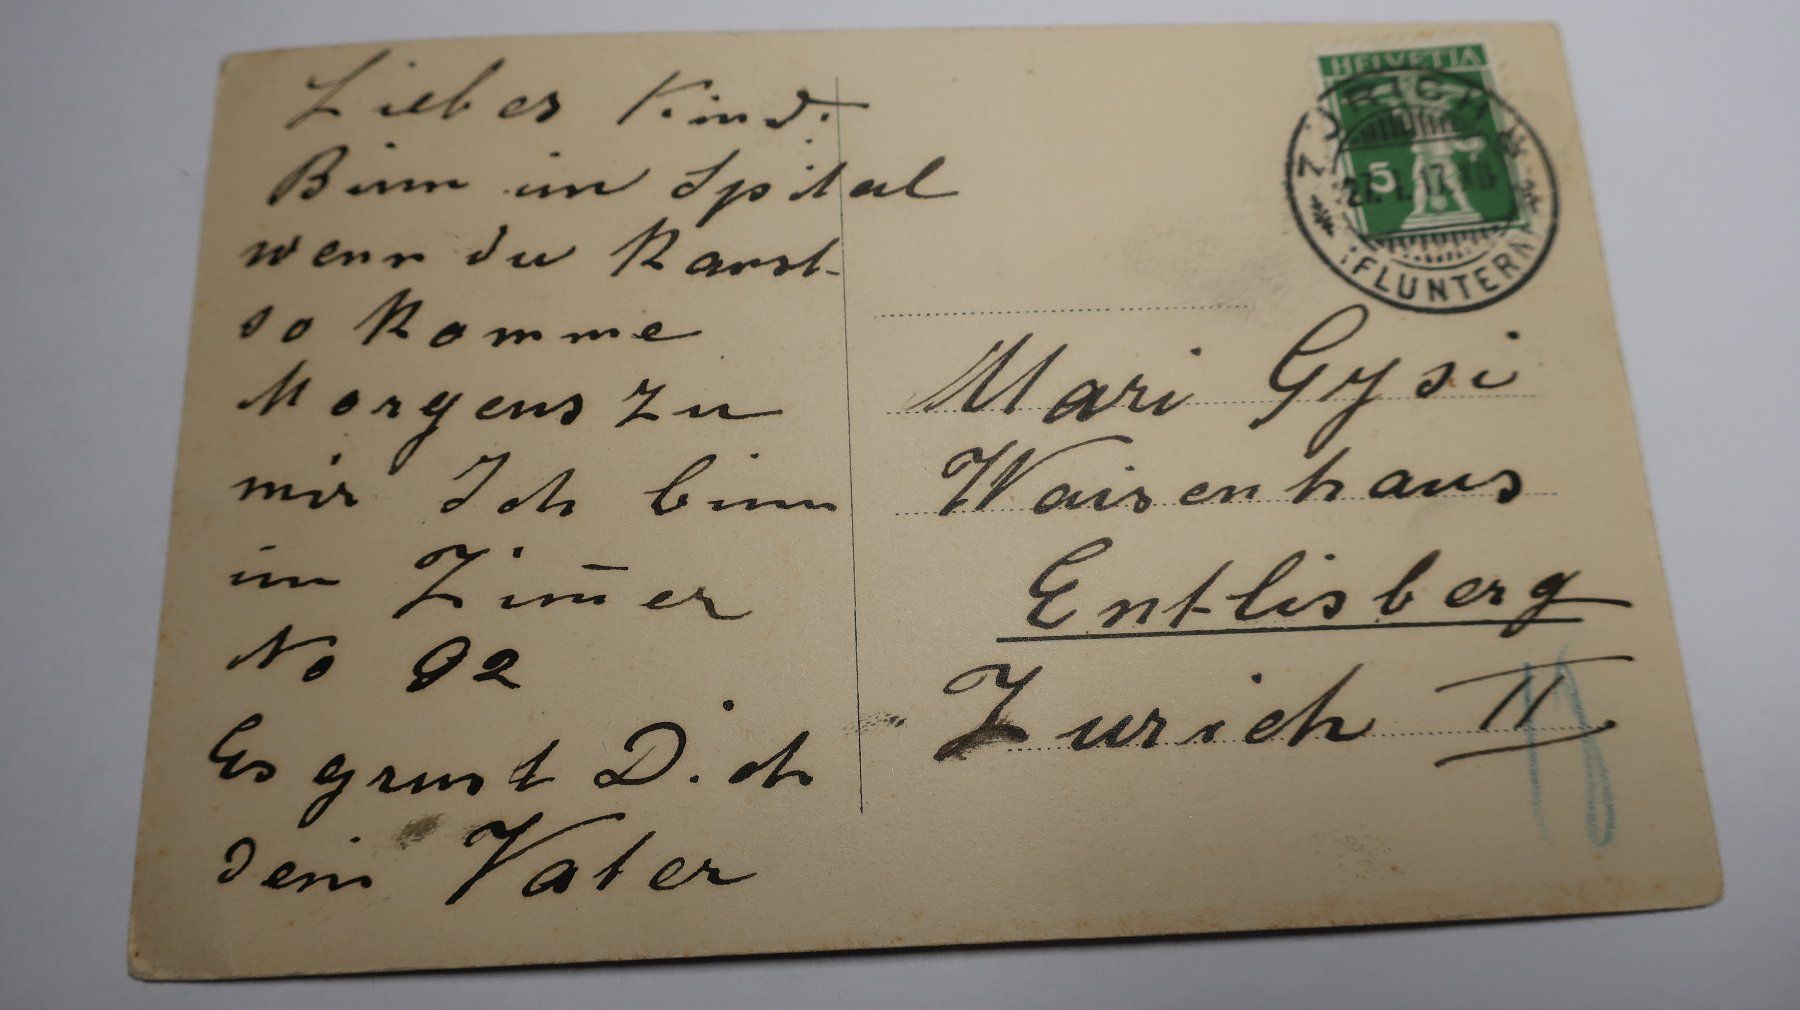 Liebes Kind.
Binn im Spital
wenn du Kanst
so Komme
Morgens zu
mir Ich binn
im Zim̄er
No 92
Es grust Dich
dein Vater
HELVETIA
5
ZÜRICH
(FLUNTERN)
Mari Gysi
Waisenhaus
Entlisberg
Zurich II